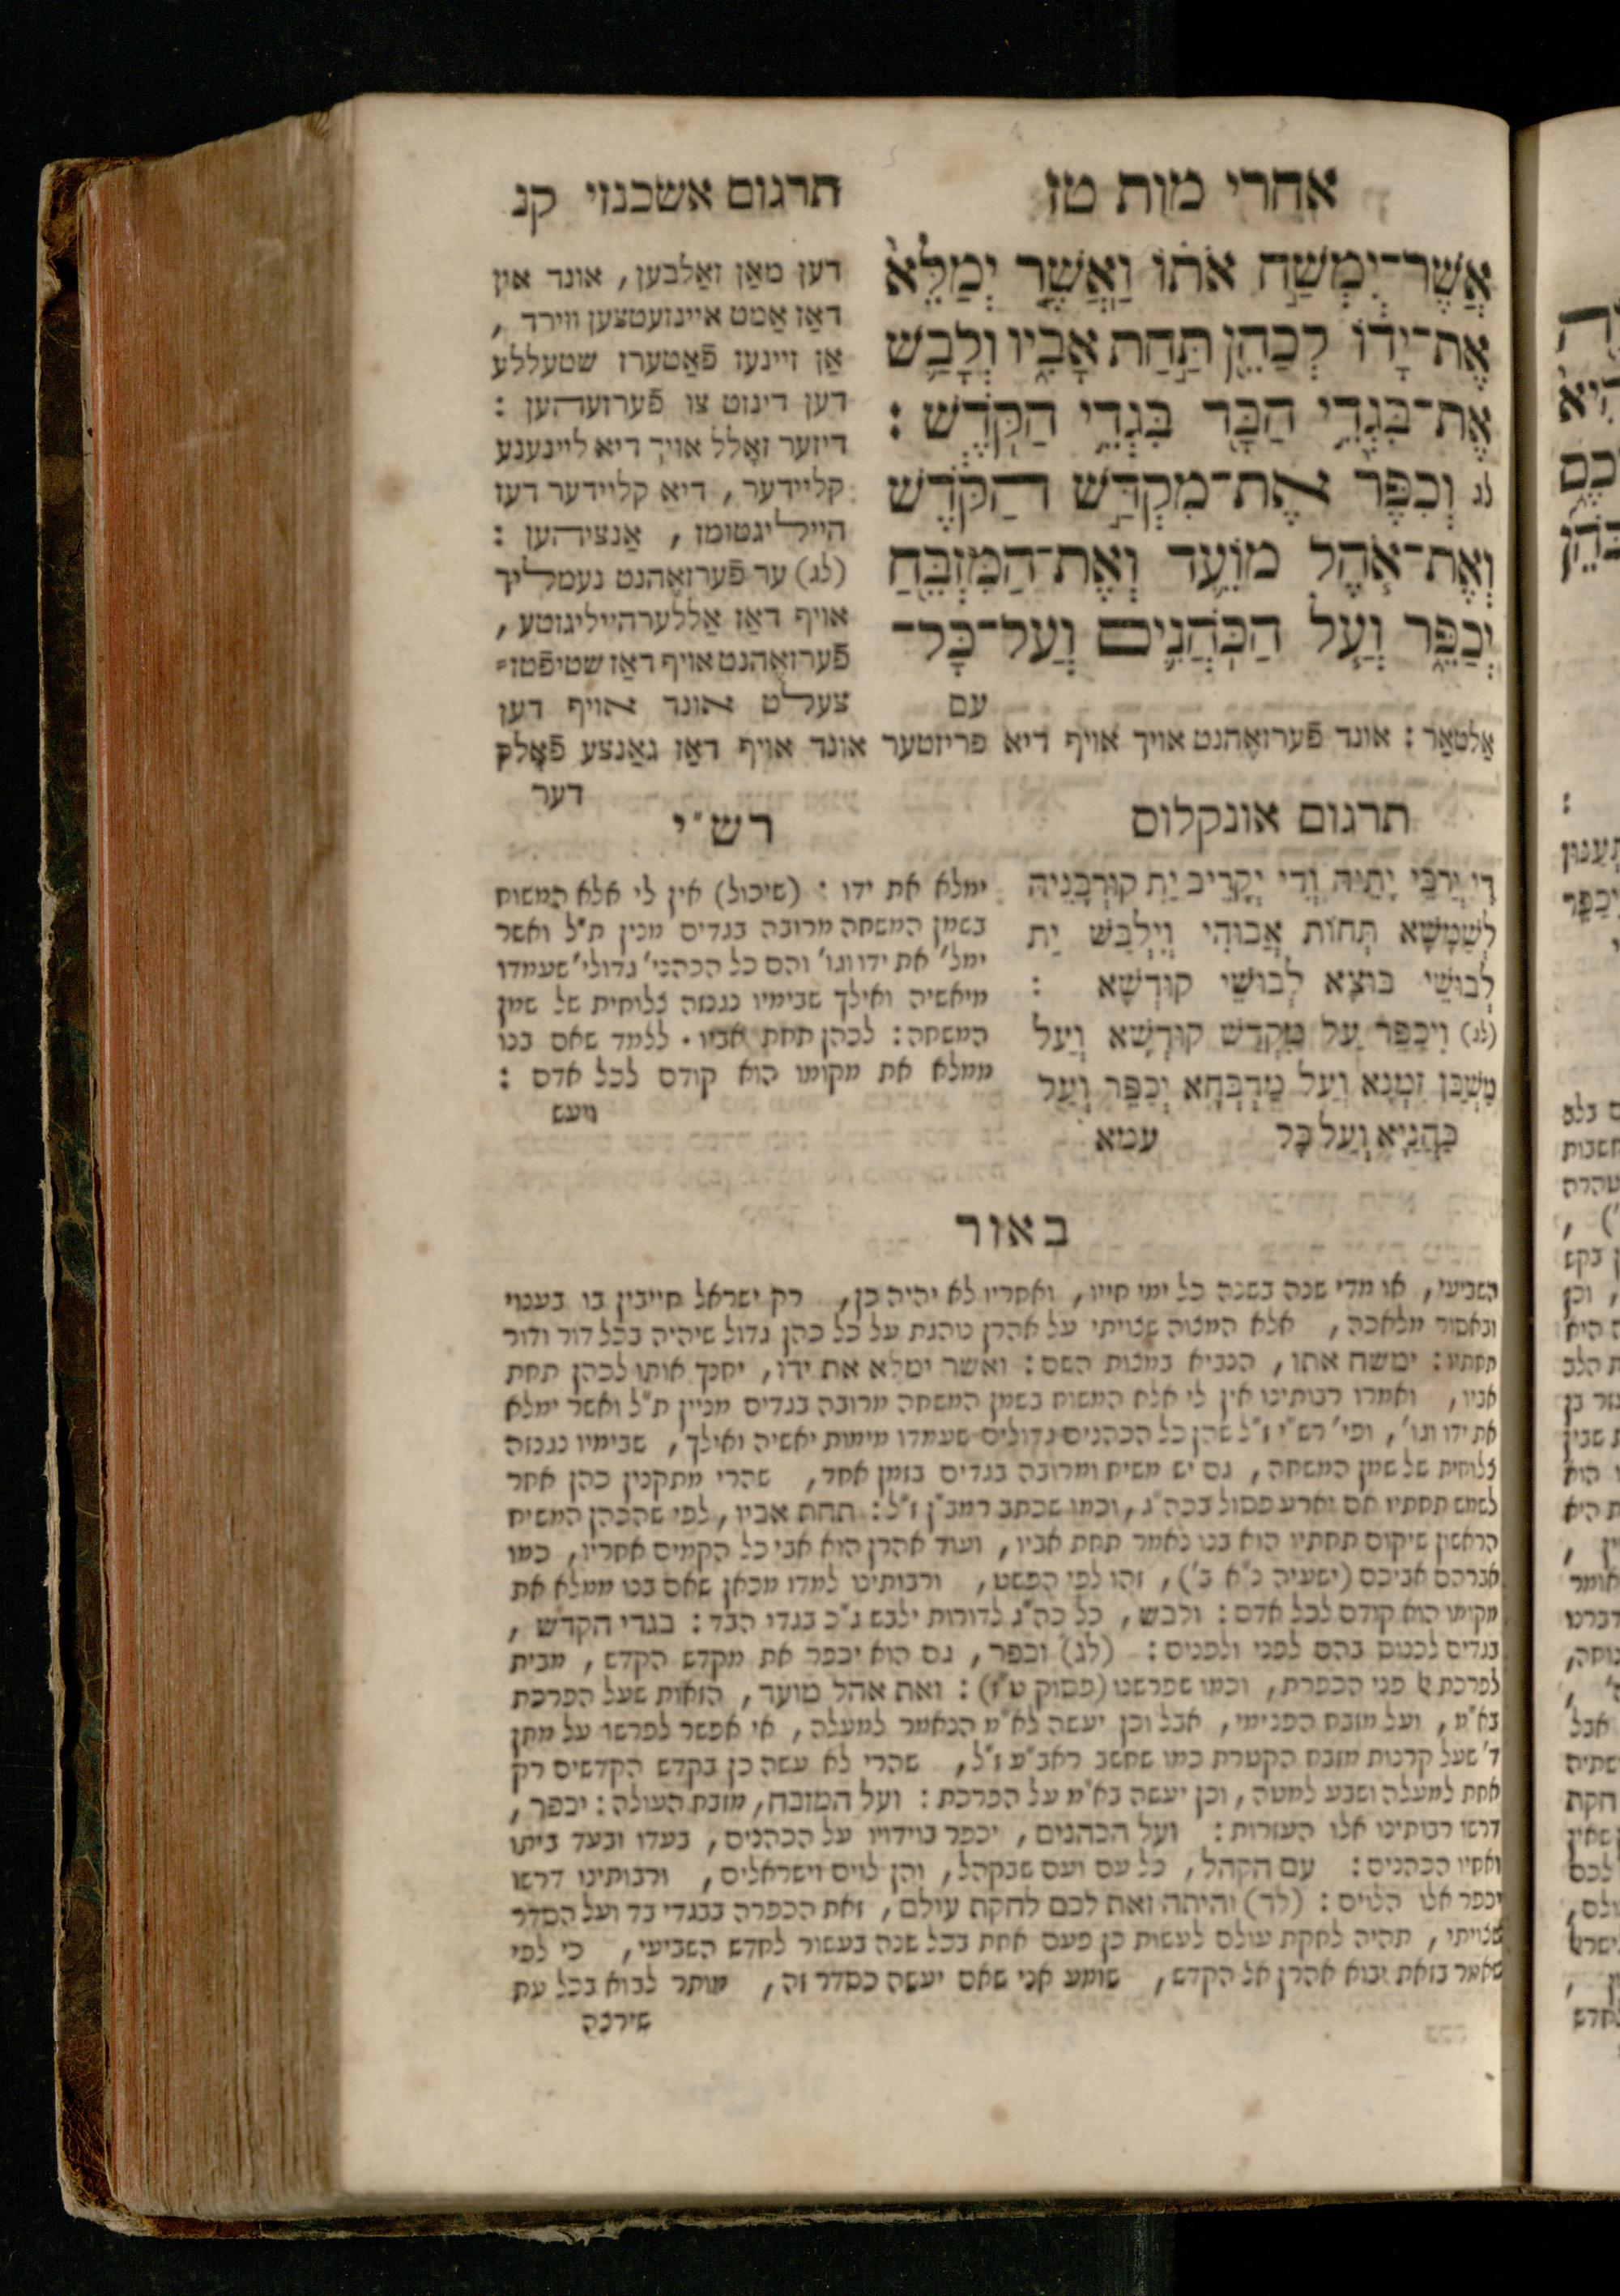 אחרי מות טז
אֲשֶׁר־יִמְשַׁ֣ח אֹת֗וֹ וַאֲשֶׁ֤ר יְמַלֵּא֙
אֶת־יָד֔וֹ לְכַהֵ֖ן תַּ֣חַת אָבִ֑יו וְלָבַ֛שׁ
אֶת־בִּגְדֵ֥י הַבָּ֖ד בִּגְדֵ֥י הַקֹּֽדֶשׁ׃
לג וְכִפֶּר֙ אֶת־מִקְדַּ֣שׁ הַקֹּ֔דֶשׁ
וְאֶת־אֹ֧הֶל מוֹעֵ֛ד וְאֶת־הַמִּזְבֵּ֖חַ
יְכַפֵּ֑ר וְעַ֧ל הַכֹּהֲנִ֛ים וְעַל־כָּל־
עם
תרגום אשכנזי קנ
דען מאַן זאַלבען, אונד אין
דאַז אַמט איינזעטצען ווירד,
אַן זיינעז פֿאַטערז שטעללע
דען דינזט צו פֿערזעהען :
דיזער זאָלל אויך דיא ליינענע
קליידער, דיא קליידער דעז
הייליגטומז, אַנציהען :
(לג) ער פֿערזאָהנט נעמליך
אויף דאַז אַללערהייליגזטע,
פֿערזאָהנט אויף דאַז שטיפֿטז=
צעלט אונד אויף דען
אַלטאַר : אונד פֿערזאָהנט אויך אויף דיא פריזטער אונד אויף דאַז גאַנצע פֿאָלק
דער
תרגום אונקלוס
דִּי יְרַבֵּי יָתֵיהּ וְדִי יְקָרֵיב יַת קוּרְבָּנֵיהּ
לְשַׁמָּשָׁא תְּחוֹת אֲבוּהִי וְיִלְבַּשׁ יַת
לְבוּשֵׁי בוּצָא לְבוּשֵׁי קוּדְשָׁא :
(לג) וִיכַפֵּר עַל מַקְדַּשׁ קוּדְשָׁא וְעַל
מַשְׁכַּן זִמְנָא וְעַל מַדְבְּחָא יְכַפֵּר וְעַל
כַּהֲנַיָּא וְעַל כָּל עמא
רש״י
ימלא את ידו : (שיכול) אין לי אלא המשוח
בשמן המשחה מרובה בגדים מנין ת״ל ואשר
ימל׳ את ידו וגו׳ והם כל הכהני׳ גדולי׳ שעמדו
מיאשיה ואילך שבימיו נגנזה צלוחית של שמן
המשחה : לכהן תחת אביו . ללמד שאם בנו
ממלא את מקומו הוא קודם לכל אדם :
ויעש
באור
השביעי, או מדי שנה בשנה כל ימי חייו, ואחריו לא יהיה כן, רק ישראל חייבין בו בענוי
ובאסור מלאכה, אלא המצוה שצויתי על אהרן נוהגת על כל כהן גדול שיהיה בכל דור ודור
תחתיו : ימשח אתו, הנביא במצות השם : ואשר ימלא את ידו, יחנך אותו לכהן תחת
אביו, ואמרו רבותינו אין לי אלא המשוח בשמן המשחה מרובה בגדים מניין ת״ל ואשר ימלא
את ידו וגו׳, ופי׳ רש״י ז״ל שהן כל הכהנים גדולים שעמדו מימות יאשיה ואילך, שבימיו נגנזה
צלוחית של שמן המשחה, גם יש משיח ומרובה בגדים בזמן אחד, שהרי מתקנין כהן אחר
לשמש תחתיו אם יארע פסול בכה״ג, וכמו שכתב רמב״ן ז״ל : תחת אביו, לפי שהכהן המשיח
הראשון שיקום תחתיו הוא בנו נאמר תחת אביו, ועוד אהרן הוא אבי כל הקמים אחריו, כמו
אברהם אביכם (ישעיה נ״א ב׳), זהו לפי הפשט, ורבותינו למדו מכאן שאם בנו ממלא את
מקומו הוא קודם לכל אדם : ולבש, כל כה״ג לדורות ילבש ג״כ בגדי הבד : בגדי הקדש,
בגדים לכנוס בהם לפני ולפנים : (לג) וכפר, גם הוא יכפר את מקדש הקדש, מבית
לפרכת פני הכפרת, וכמו שפרשנו (פסוק ט״ז) : ואת אהל מועד, הזאות שעל הפרכת
בא״מ, ועל מזבח הפנימי, אבל וכן יעשה לא״מ הנאמר למעלה, אי אפשר לפרשו על מתן
ד׳ שעל קרנות מזבח הקטרת כמו שחשב ראב״ע ז״ל, שהרי לא עשה כן בקדש הקדשים רק
אחת למעלה ושבע למטה, וכן יעשה בא״מ על הפרכת : ועל המזבח, מזבח העולה : יכפר,
דרשו רבותינו אלו העזרות : ועל הכהנים, יכפר בוידויו על הכהנים, בעדו ובעד ביתו
ואחיו הכהנים : עם הקהל, כל עם ועם שבקהל, והן לוים וישראלים, ורבותינו דרשו
יכפר אלו הלוים : (לד) והיתה זאת לכם לחקת עולם, זאת הכפרה בבגדי בד ועל הסדר
שצויתי, תהיה לחקת עולם לעשות כן פעם אחת בכל שנה בעשור לחדש השביעי, כי לפי
שאמר בזאת יבוא אהרן אל הקדש, שומע אני שאם יעשה כסדר זה, מותר לבוא בכל עת
שירצה